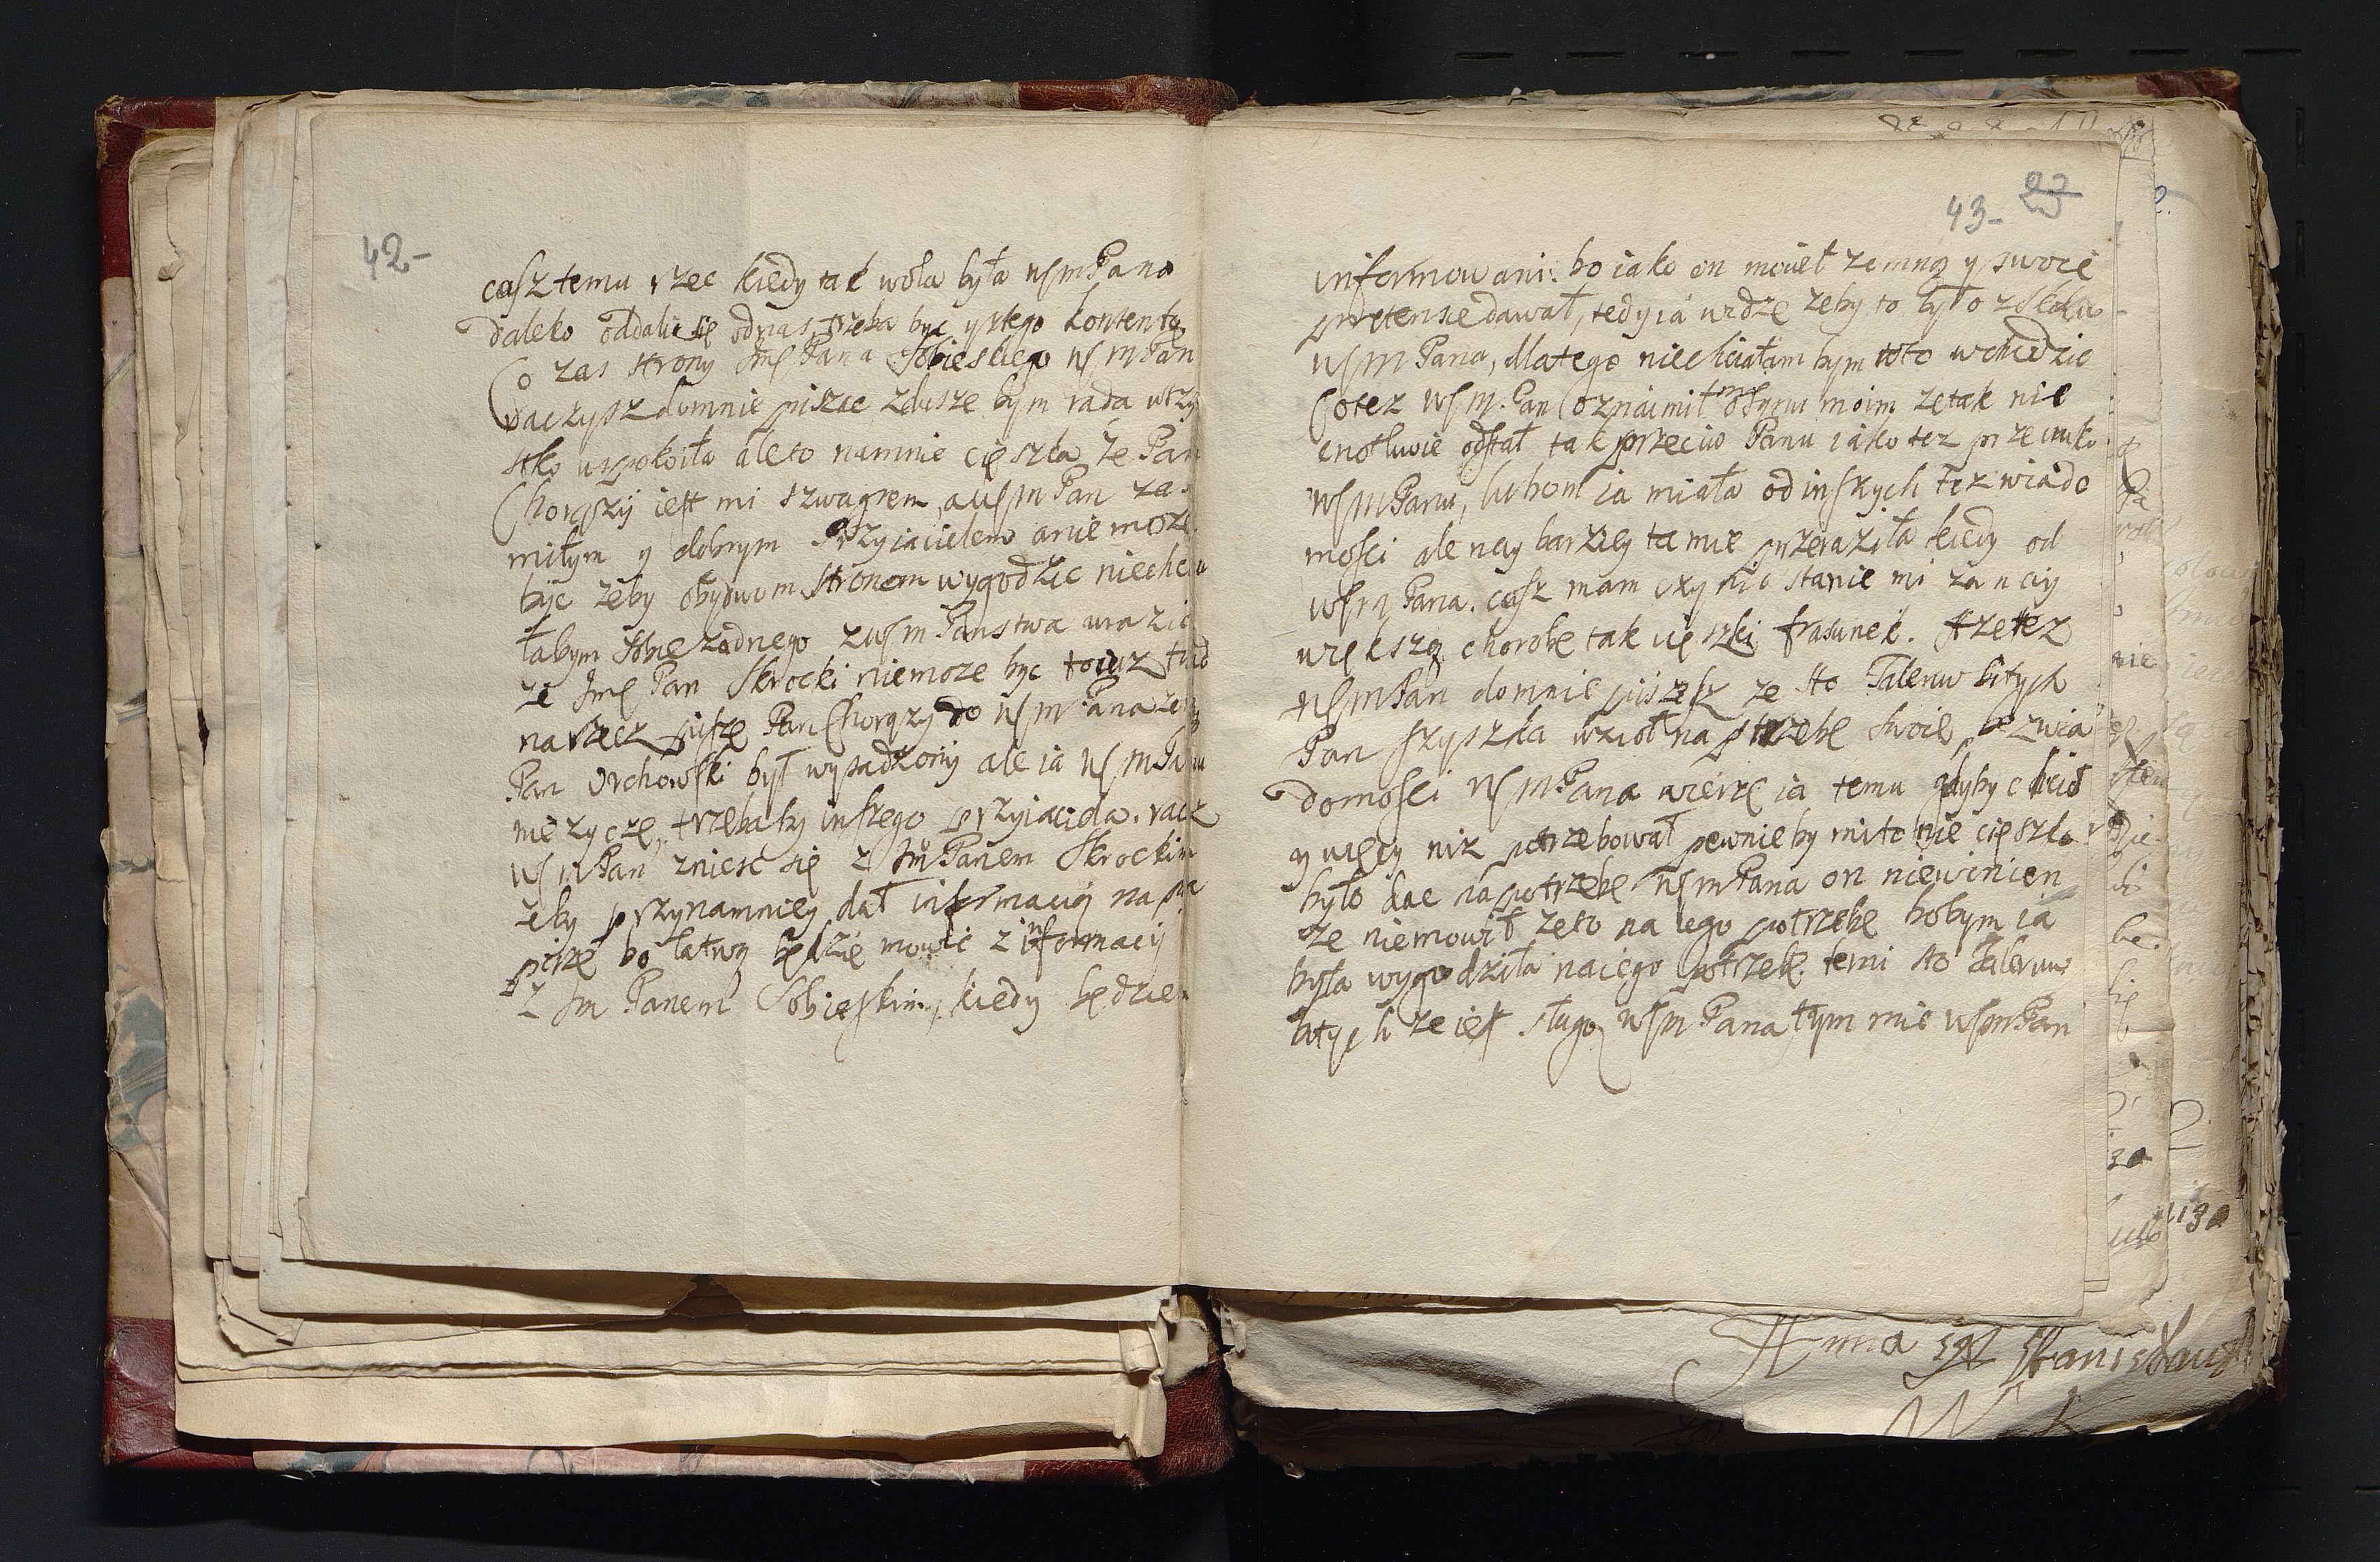 42-
cosz temu rzec kiedy tak wola była WsmPana
daleko oddalic się odnas trzeba byc y stego kontentą
Co zas strony Jmś Pana Sobieskiego WsmPan
raczysz domnie pisząc zdusze bym rada wszy
stko uspokoiła aleto namnie cięszka że Pan
Chorąszÿ iest mi szwagrem, aWsmPan zas
miłym y dobrym Przyiacielem anie może
byc żeby obydwom stronom wygodzic niechcia
łabym sobie żadnego zWsm Panstwa urazic
że Jmś Pan Skrocki niemoze byc toiuz
na rzecz pisze Pan Chorązy do WsmPana że
Pan Orchowski był wysadzony ale ia WsmPanu
nie zyczę, trzebaby inszego przyiaciela. racz
WsmPan zniesc się z JmPanem Skrockim
zeby przynamniey dał informacią na
bo łatwy będzie mowic z informacÿ
z Jm Panem Sobieskim, kiedy będziem
43- 23
informowani: bo iako on mowił zemną y swoie
pretensie dawał, tedy ia widzę żeby to było zszkodą
WsmPana, dlatego niechciałam bym wto wchodzic
Cotez Wsm. Pan oznaimił osynu moim zetak nie
cnotliwie odstał tak przeciw Panu iako tez przeciwko
WsmPanu, lubom ia miała od inszych też wiado
mosci ale naybarziey ta mie przeraziła kiedy od
WsmPana. cosz mam czynic stanie mi za naiy
większą chorobe tak cięszki frasunek. A zetez
WsmPan domnie piszesz ze sto Talerow bitych
Pan wziołna potrzebę swoię bezwia
domosci WsmPana wierzę ia temu gdyby chciał
y więcy niz potrzebował pewnieby mito nie cięszko
było dac napotrzebe WsmPana on niewinien
ze niemowił zeto na iego potrzebe bobym ia
była wygodziła naiego potrzebe temi sto Talerow
bitych ze iest sługą WsmPana tym mie WsmPan
Anna Stanisław